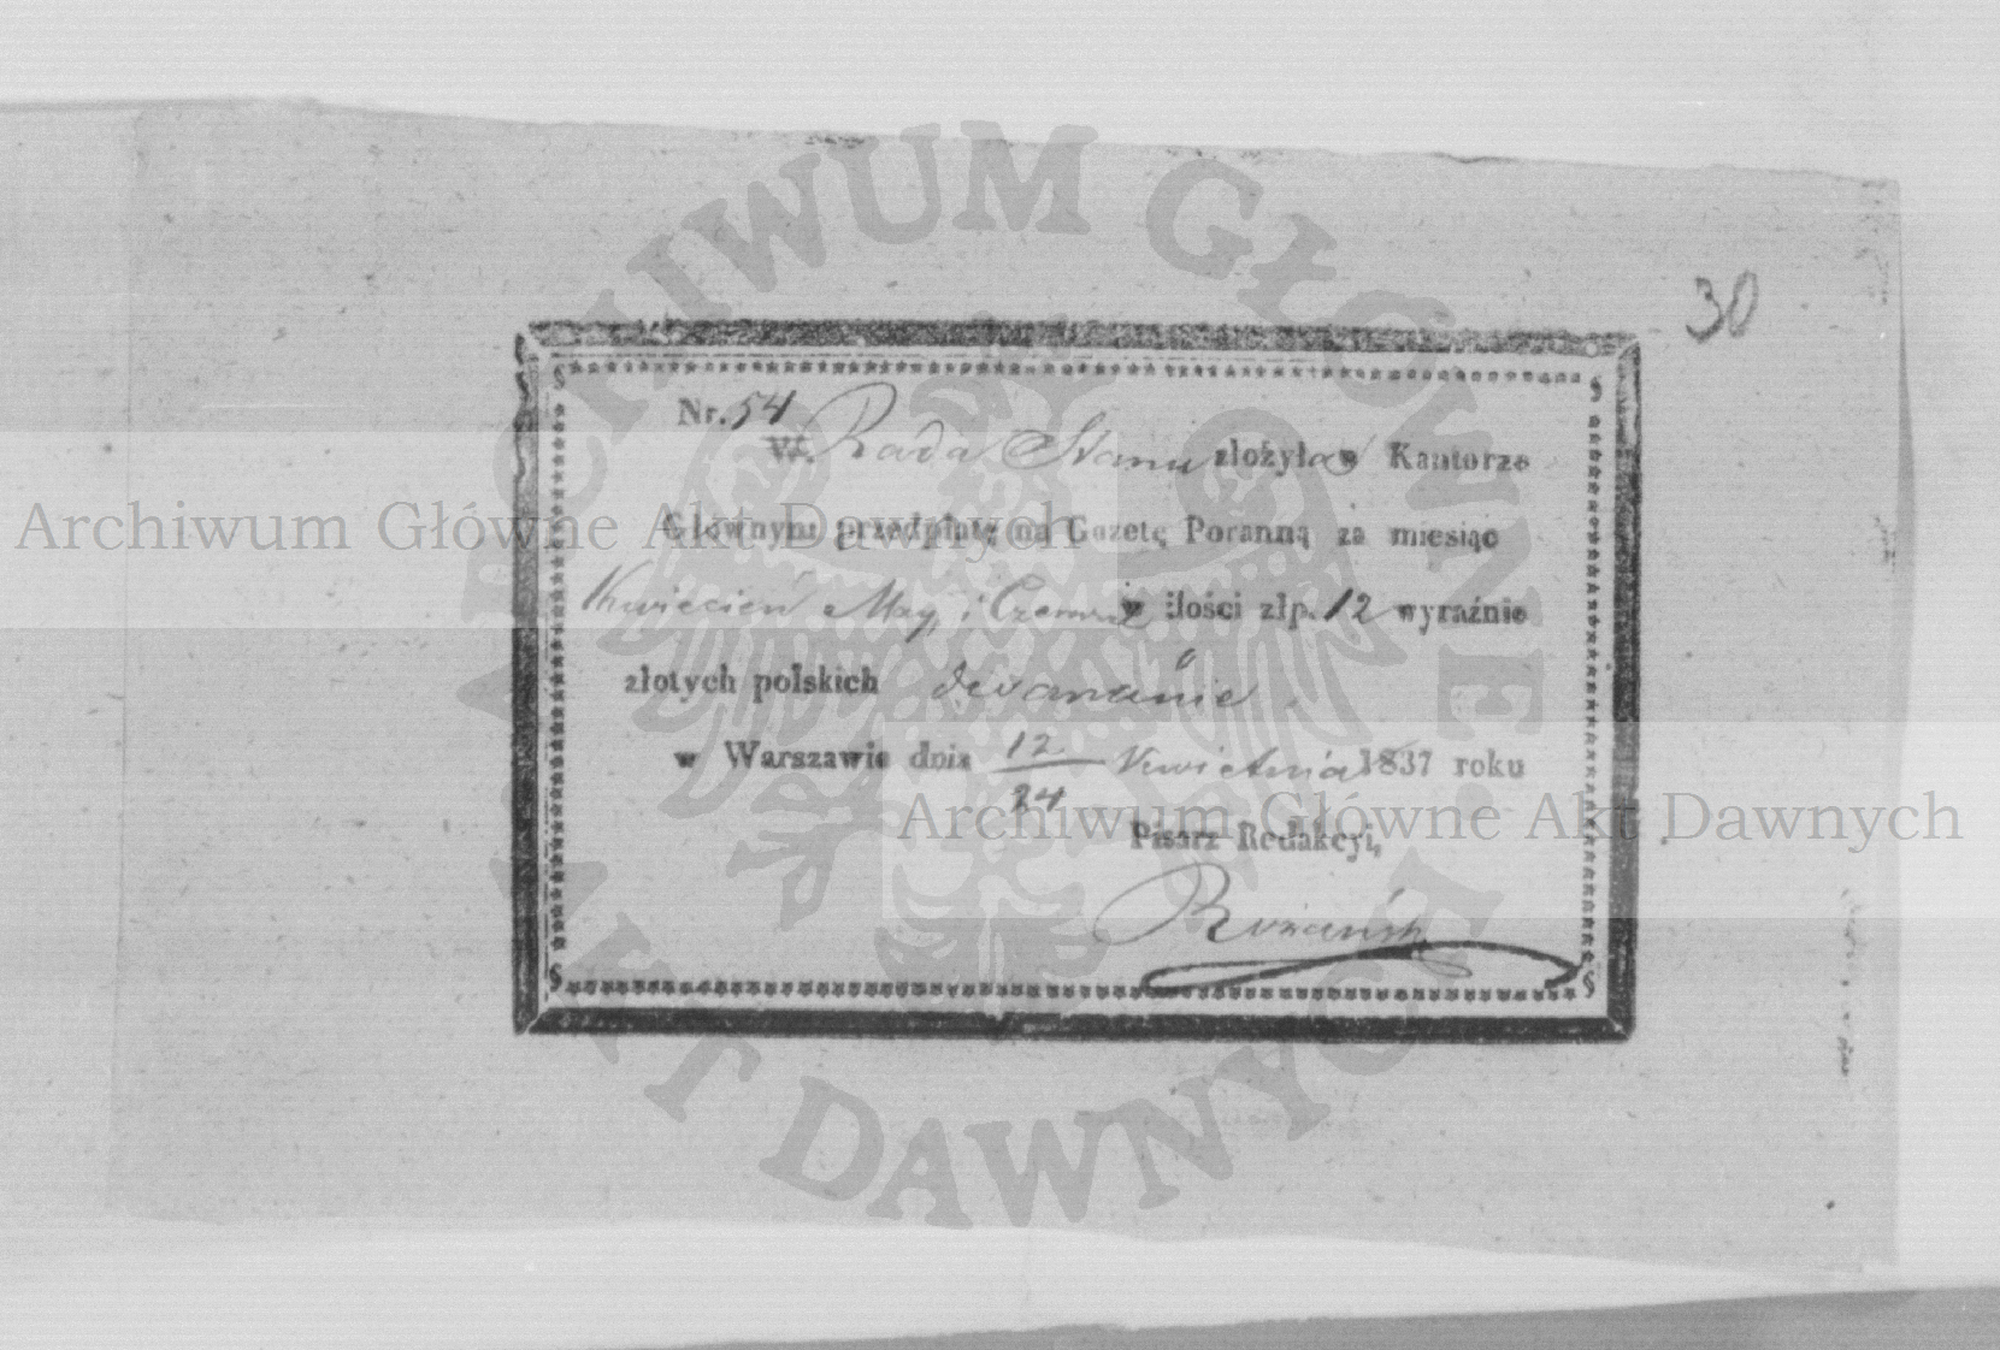 30
Nr. 54
W. Rada Stanu złożyła w Kantorze
Głównym przedpłatę na Gazetę Poranną za miesiąc
Kwiecień May, i Czerwiec w ilości złp. 12 wyraźnie
złotych polskich dwanaście.
w Warszawie dnia 12/24 Kwietnia 1837 roku
Pisarz Redakcyi,
ARCHIWUM GŁÓWNE
AKT DAWNYCH
Archiwum Główne Akt Dawnych
Archiwum Główne Akt Dawnych